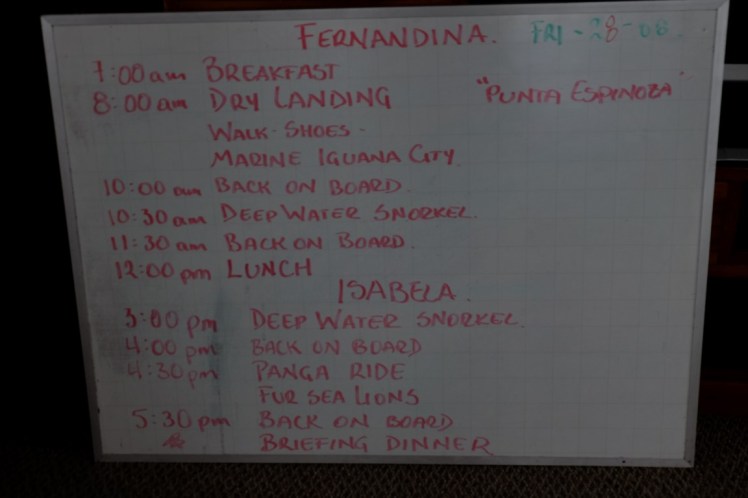 FERNANDINA. FRI - 28 - 08
7:00 am BREAKFAST
8:00 am DRY LANDING "PUNTA ESPINOZA"
WALK - SHOES -
MARINE IGUANA CITY
10:00 am BACK ON BOARD.
10:30 am DEEP WATER SNORKEL.
11:30 am BACK ON BOARD.
12:00 pm LUNCH
ISABELA.
3:00 pm DEEP WATER SNORKEL.
4:00 pm BACK ON BOARD
4:30 pm PANGA RIDE
FUR SEA LIONS
5:30 pm BACK ON BOARD
BRIEFING DINNER